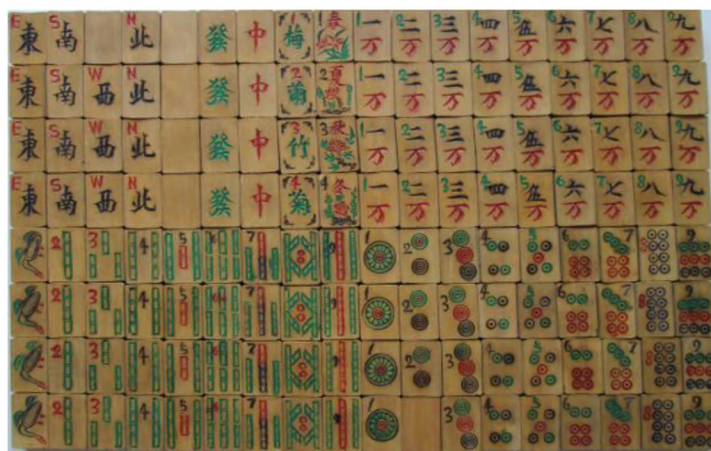 E東 S南 N北 發 中 1梅 1春 1一万 2二万 3三万 4四万 5伍万 6六万 7七万 8八万 9九万
E東 S南 W西 N北 發 中 2蘭 2夏 1一万 2二万 3三万 4四万 5伍万 6六万 7七万 8八万 9九万
E東 S南 W西 N北 發 中 3竹 3秋 1一万 2二万 3三万 4四万 5伍万 6六万 7七万 8八万 9九万
E東 S南 W西 N北 發 中 4菊 4冬 1一万 2二万 3三万 4四万 5伍万 6六万 7七万 8八万 9九万
2 3 4 5 6 7 9 1 2 3 4 5 6 7 8 9
2 3 4 5 6 7 9 1 2 3 4 5 6 7 8 9
2 3 4 5 6 7 9 1 2 3 4 5 6 7 8 9
2 3 4 5 6 7 9 1 3 4 5 6 7 8 9